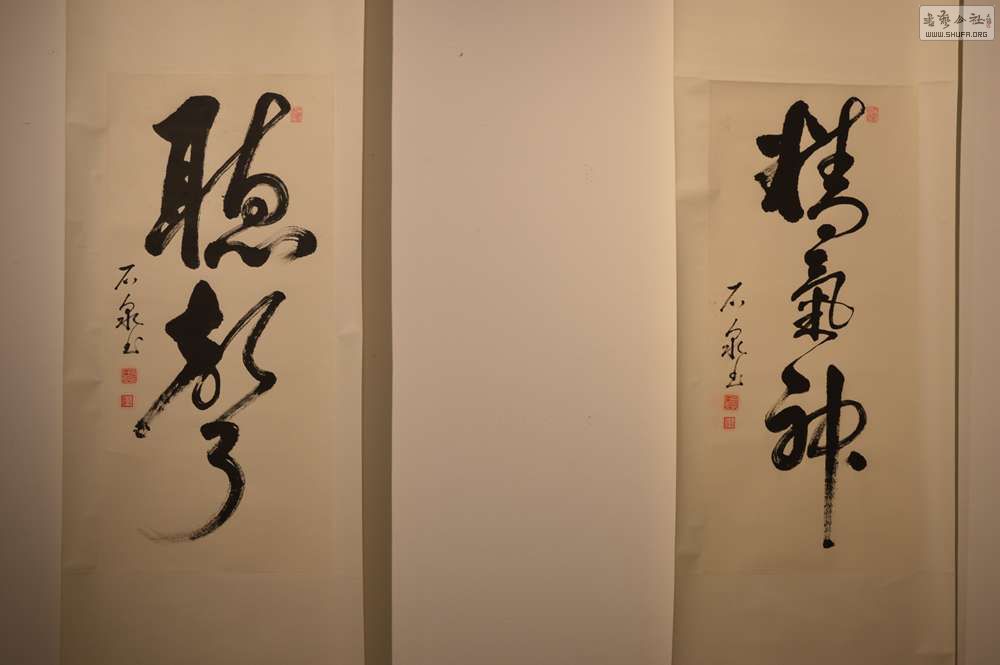 書藝公社
WWW.SHUFA.ORG
精氣神
石泉书
聽聲
石泉书